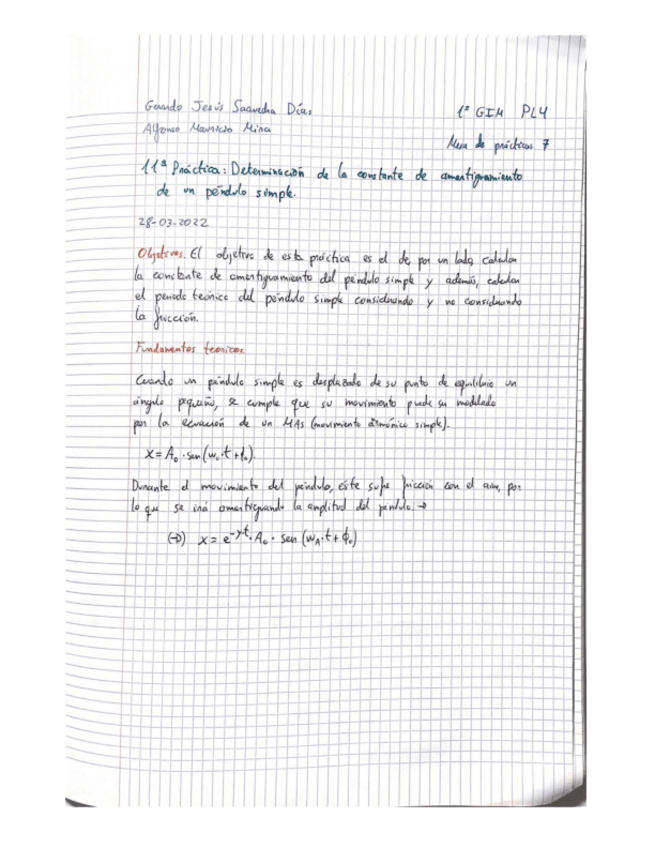 Gerardo Jesús Saavedra Días
1º GIM PL4
Alfonso Mauricio Mina
Mesa de prácticas 7
11ª Práctica: Determinación de la constante de amortiguamiento
de un péndulo simple.
28-03-2022
Objetivos. El objetivo de esta práctica es el de, por un lado, calcular
la constante de amortiguamiento del péndulo simple y además, calcular
el periodo teórico del péndulo simple considerando y no considerando
la fricción.
Fundamentos teóricos.
Cuando un péndulo simple es desplazado de su punto de equilibrio un
ángulo pequeño, se cumple que su movimiento puede ser modelado
por la ecuación de un MAS (movimiento armónico simple).
x = A₀ · sen (w₀ · t + ϕ₀).
Durante el movimiento del péndulo, éste sufre fricción con el aire, por
lo que se irá amortiguando la amplitud del péndulo. →
(→) x = e^-γt · A₀ · sen (w_A · t + ϕ₀)